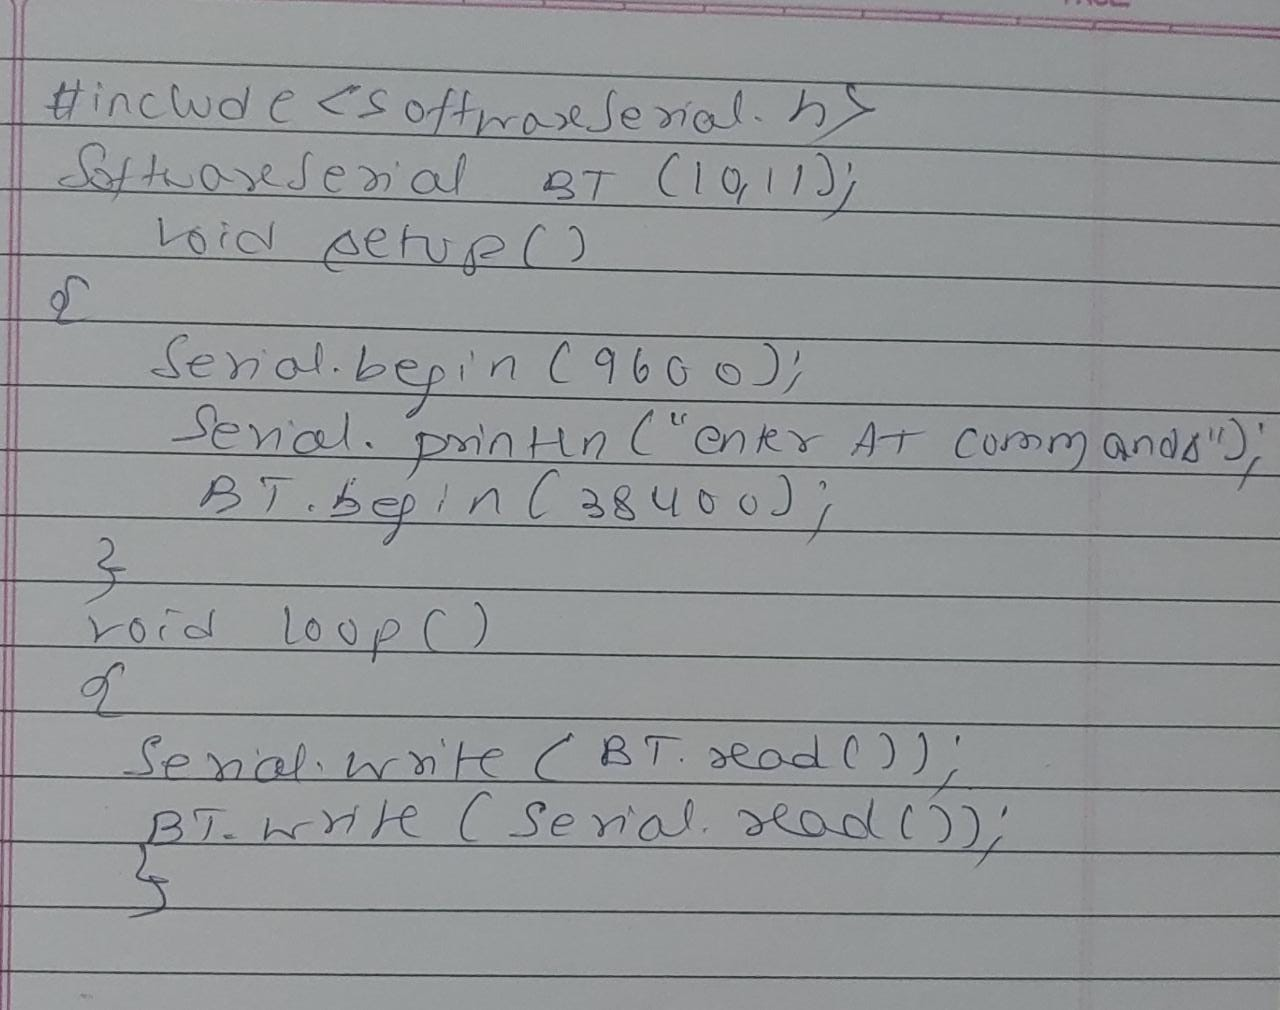 #include <softwareSerial.h>
SoftwareSerial BT (10,11);
void setup()
{
Serial.begin (9600);
Serial.println ("enter AT commands");
BT.begin (38400);
}
void loop()
{
Serial.write (BT.read());
BT.write (Serial.read());
}